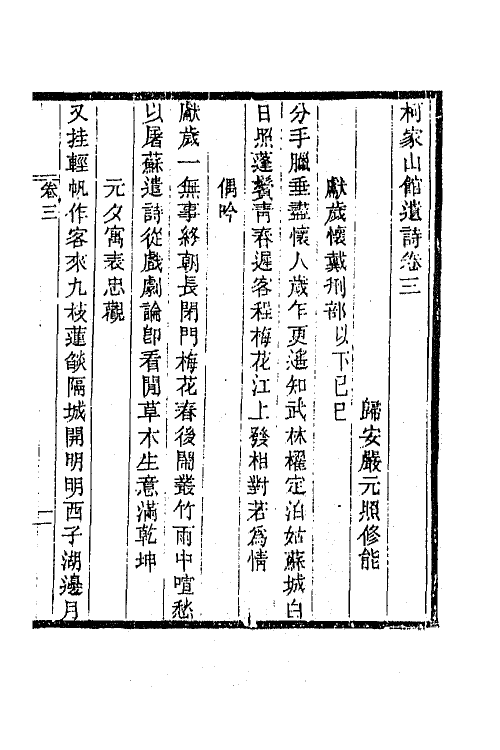 柯家山館遺詩卷三
歸安嚴元照修能
獻歲懷戴刑部以下己巳
分手臘垂盡懷人歲乍更遥知武林櫂定泊姑蘇城白
日照蓬鬢青春遲客程梅花江上發相對若爲情
偶吟
獻歲一無事終朝長閉門梅花春後鬧叢竹雨中喧愁
以屠蘇遣詩從戲劇論卽看閒草木生意滿乾坤
元夕寓表忠觀
又挂輕帆作客來九枝蓮燄隔城開明明西子湖邊月
卷三
一